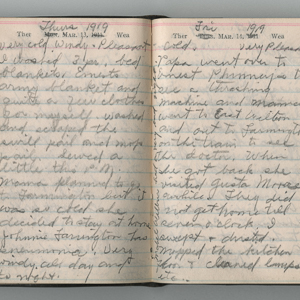 Thurs 1919
Ther Mon. Mar. 13, 1911 Wea
Very cold, Windy & Pleasant
I washed 3 prs. bed
blankets, Ernest's
army blanket and
quite a few clothes
for myself, washed
and scraped the
swill pail and mop
pail. Sewed a
little this P.M.
Mama planned to go
to Farmington but it
was so cold she
decided to stay at home
Johnie Farrington has
pneumonia. Very
windy all day and
to night.
Fri 1919
Ther Mar. 14, 1911 Wea
Cold, Very Pleasant
Papa went over to
Ernest Phinney's to
see a thrashing
machine and mama
went to East Wilton
and out to Farmington
on the train to see
the doctor. When
she got back she
visited Gusta Morse
awhile. They did
not get home till
seven o'clock. I
swept & dusted.
mopped the kitchen
floor & cleaned lamps
etc.